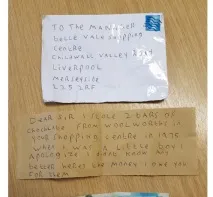 TO THE MANAGER
BELLE VALE SHOPPING
CENTRE
CHILDWALL VALLEY
LIVERPOOL
MERSEYSIDE
L25 2RF
DEAR SIR I STOLE 2 BARS OF
CHOCOLATE FROM WOOLWORTHS IN
YOUR SHOPPING CENTRE IN 1975
WHEN I WAS A LITTLE BOY I
APOLOGIZE I DIDNT KNOW ANY
BETTER HERES THE MONEY I OWE YOU
FOR THEM